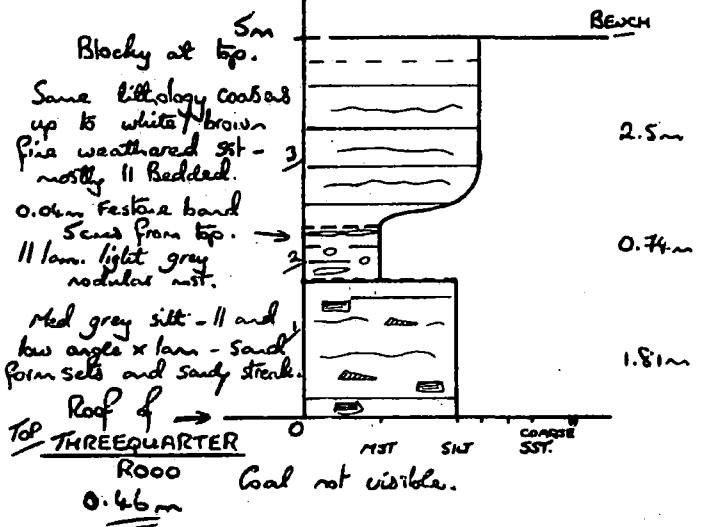 5m
BENCH
Blocky at top.
Same lithology coarsens
up to white/brown
fine weathered silt -
mostly || Bedded.
3
2.5m
0.04m Festone band
5cms from top.
|| lam. light grey
nodular mst.
2
0.74m
Med grey silt - || and
low angle x lam - Sand
form sets and sandy streaks.
1
1.81m
Roof of
TOP THREEQUARTER
R000
0.46m
0
MST SILT COARSE
SST.
Coal not visible.